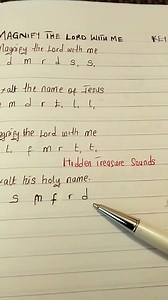 MAGNIFY THE LORD WITH ME KEY
Magnify the Lord with me
d m r d s, s,
xalt the name of Jesus
m d r t, l, l,
agnify the Lord with me
L, f m r t, t,
Hidden Treasure Sounds
xalt his holy name.
s m f r d